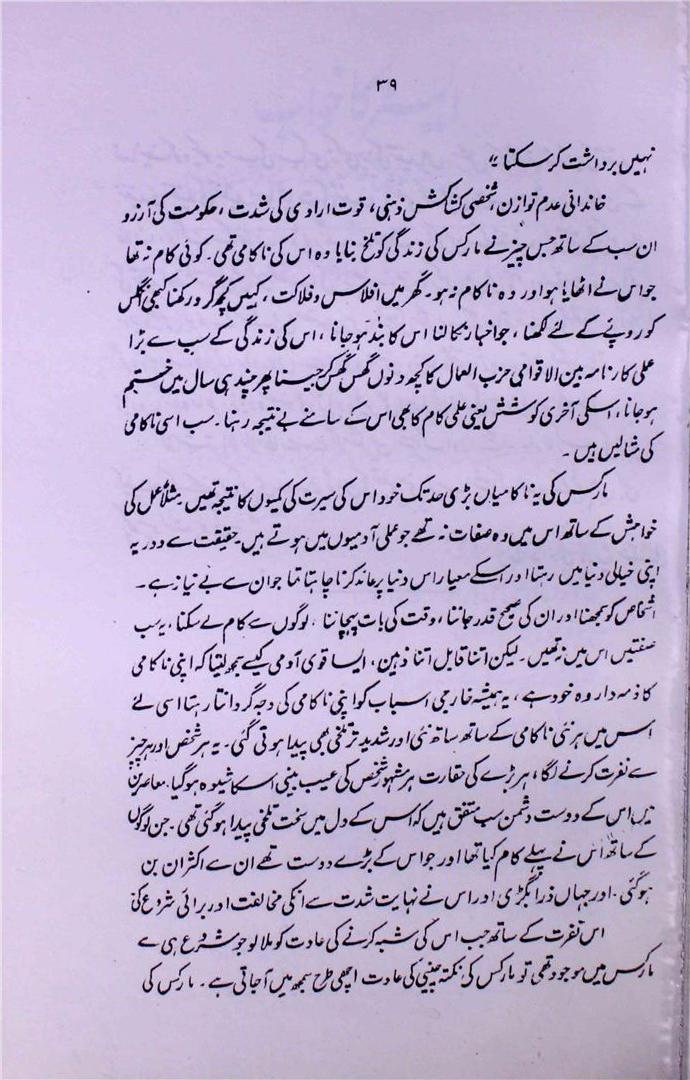 ۳۹
نہیں برداشت کر سکتا ؛"
خاندانی عدم توازن، شخصی کشاکش ذہنی، قوت ارادی کی شدت، حکومت کی آرزو
ان سب کے ساتھ جس چیز نے مارکس کی زندگی کو تلخ بنایا وہ اس کی ناکامی تھی۔ کوئی کام نہ تھا
جو اس نے اٹھایا ہو اور وہ ناکام نہ ہو۔ گھر میں افلاس و فلاکت، کہیں کچھ گرو رکھنا کبھی اینگلس
کو روپے کے لئے لکھنا، جو اخبار نکالنا اس کا بند ہو جانا، اس کی زندگی کے سب سے بڑا
عملی کارنامہ بین الاقوامی حزب العمال کا کچھ دنوں گھس گھس کر جینا پھر چند ہی سال میں ختم
ہو جانا، اسکی آخری کوشش یعنی علمی کام کا بھی اس کے سامنے بے نتیجہ رہنا۔ سب اسی ناکامی
کی مثالیں ہیں۔
مارکس کی یہ ناکامیاں بڑی حد تک خود اس کی سیرت کی کمیوں کا نتیجہ تھیں۔ مثلاً عمل کی
خواہش کے ساتھ اس میں وہ صفات نہ تھے جو عملی آدمیوں میں ہوتے ہیں۔ حقیقت سے دور یہ
اپنی خیالی دنیا میں رہتا اور اسکے معیار اس دنیا پر عائد کرنا چاہتا تھا جو ان سے بے نیاز ہے۔
اشخاص کو سمجھنا اور ان کی صحیح قدر جاننا، وقت کی بات پہچاننا، لوگوں سے کام لے سکنا، یہ سب
صفتیں اس میں نہ تھیں۔ لیکن اتنا قابل اتنا ذہین، ایسا قوی آدمی کیسے سمجھ لیتا کہ اپنی ناکامی
کا ذمہ دار وہ خود ہے، یہ ہمیشہ خارجی اسباب کو اپنی ناکامی کی وجہ گردانتا رہتا اسی لئے
اس میں ہر نئی ناکامی کے ساتھ ساتھ نئی اور شدید تر تلخی بھی پیدا ہوتی گئی۔ یہ ہر شخص اور ہر چیز
سے نفرت کرنے لگا، ہر بڑے کی حقارت ہر مشہور شخص کی عیب بینی اسکا شیوہ ہو گیا۔ معاصرین
میں اس کے دوست دشمن سب متفق ہیں کہ اس کے دل میں سخت تلخی پیدا ہو گئی تھی۔ جن لوگوں
کے ساتھ اس نے پہلے کام کیا تھا اور جو اس کے بڑے دوست تھے ان سے اکثر ان بن
ہو گئی۔ اور جہاں ذرا بگڑی اور اس نے نہایت شدت سے انکی مخالفت اور برائی شروع کی
اس نفرت کے ساتھ جب اس کی شبہ کرنے کی عادت کو ملا لو جو شروع ہی سے
مارکس میں موجود تھی تو مارکس کی نکتہ چینی کی عادت اچھی طرح سمجھ میں آجاتی ہے۔ مارکس کی